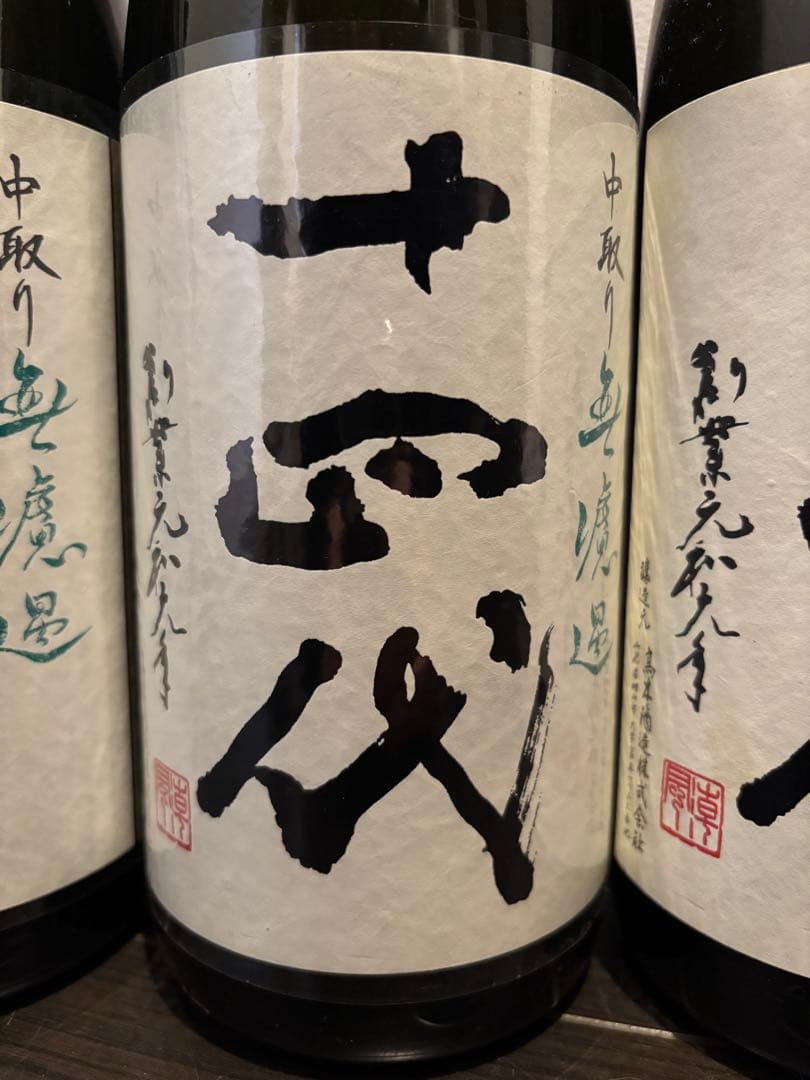 中取り
無濾過
中取り
無濾過
十四代
創業元和元年
創業元和元年
醸造元 高木酒造株式会社